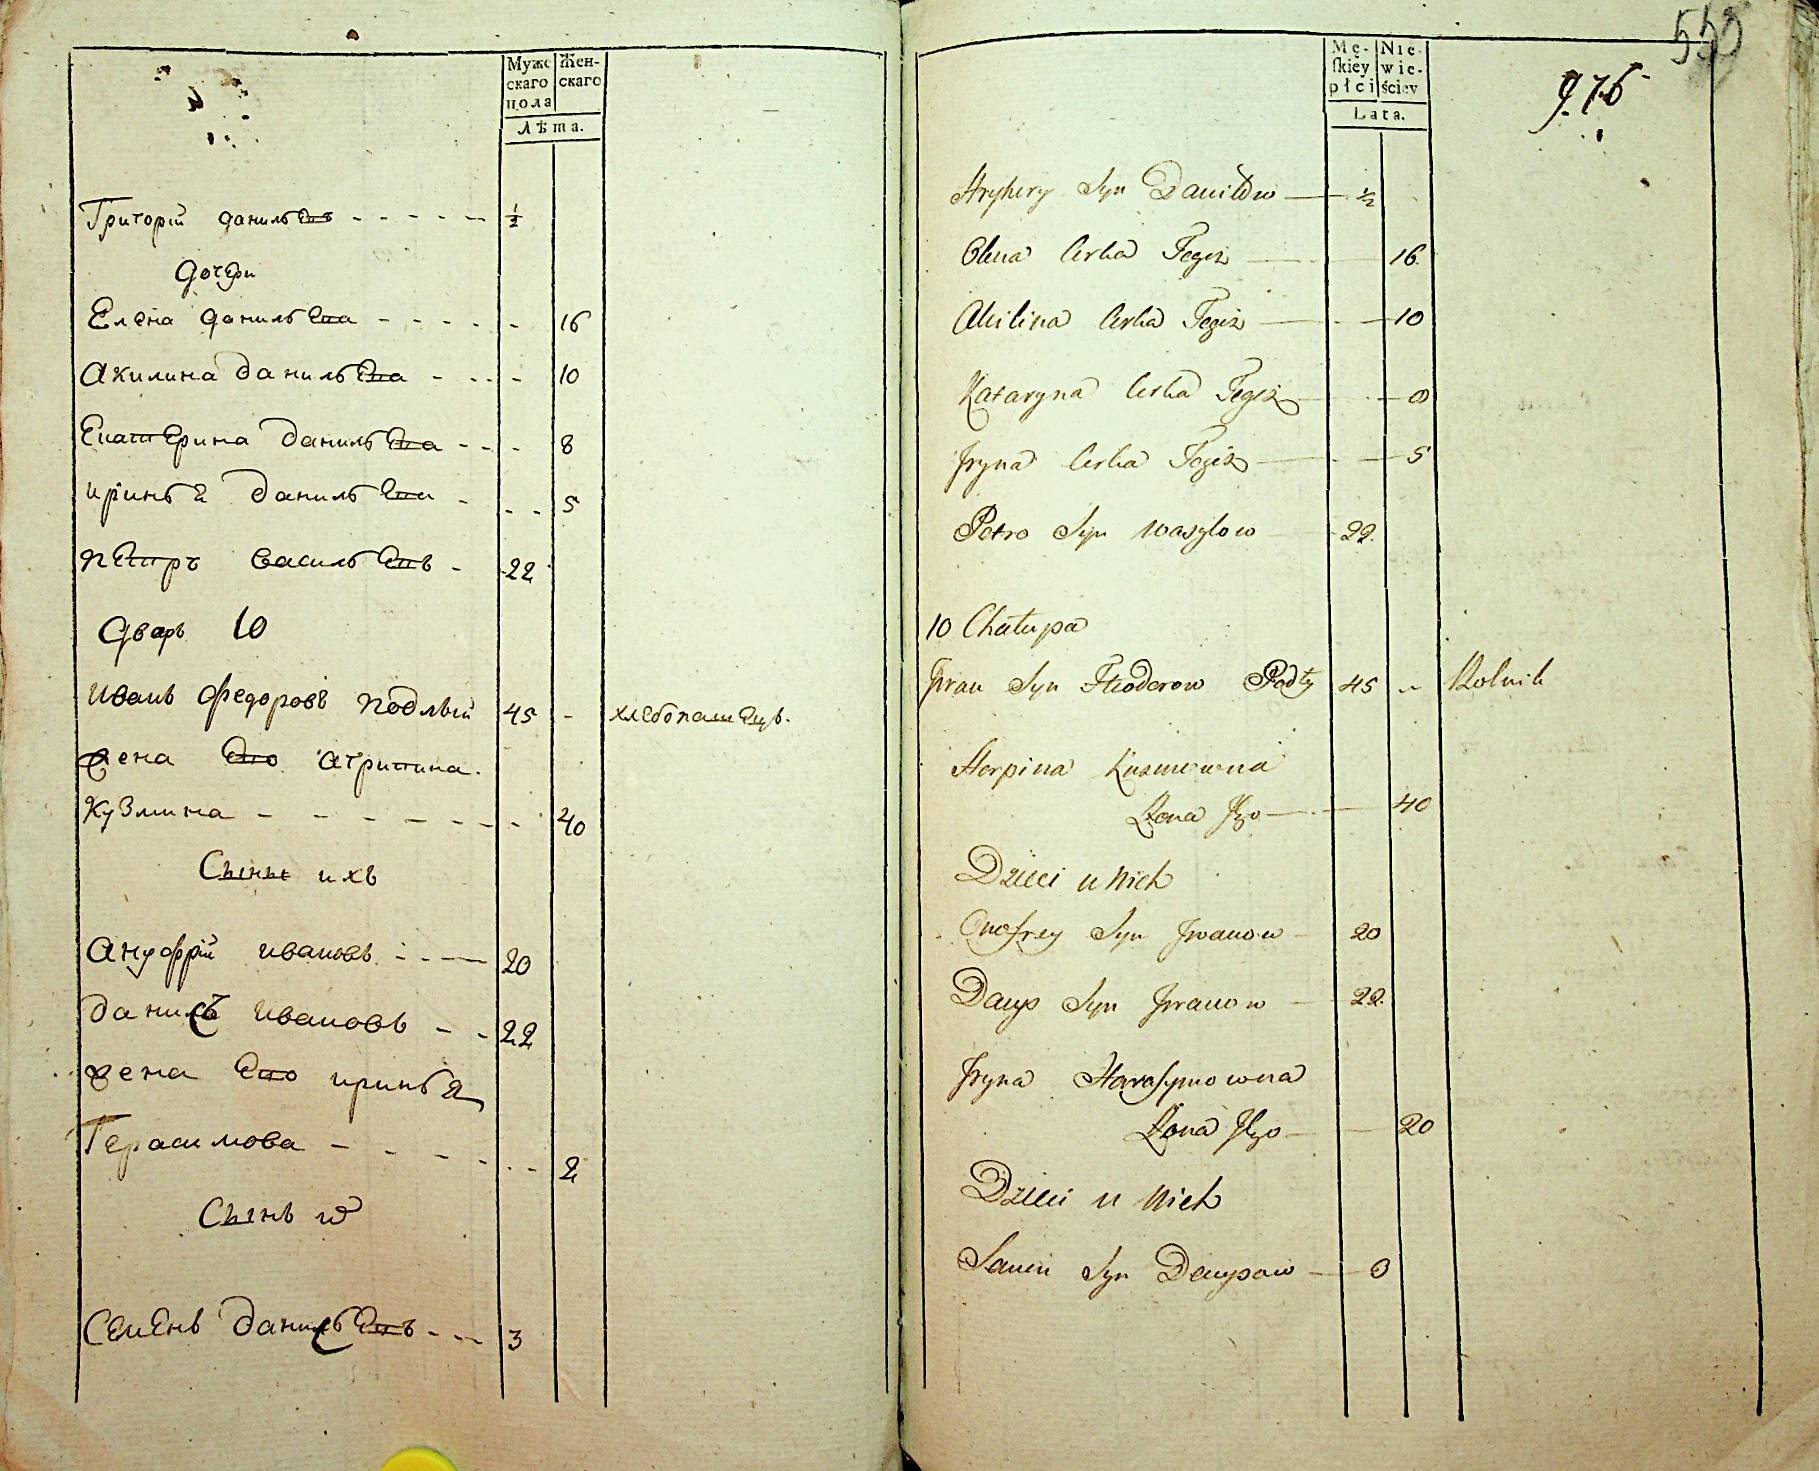 Муже
скаго
пола
Жен-
скаго
Лѣта.
Григорій данильевъ - - - - - ½
дочери
Елена данильева - - - - - 16
Акилина данильева - - - - 10
Екатерина данильева - - - 8
иринья данильева - - - 5
пЕтръ васильевъ - 22
дворъ 10
иванъ федоровъ подлый 45 - хлебопашецъ.
жена Его агрипина.
Кузмина - - - - - - - 40
Сыны ихъ
Ануфрій ивановъ - - - 20
данилъ ивановъ - - 22
жена Его иринья
Герасимова - - - - - - 2
Сынъ их
СемЕнъ данильевъ - - - 3
Mę-
skiey
płci
Nie-
wie-
ściey
Lata.
550
976
Hryhery Syn Daniłow — ½
Olena Corka Tegoż — 16
Akilina Corka Tegoż — 10
Kataryna Corka Tegoż — 8
Jryna Corka Tegoż — 5
Petro Syn Wasylow — 22.
10 Chałupa
Jwan Syn Fteodorow Podły 45 - Rolnik
Horpina Kusmowna
Żona Jego — 40
Dzieci u Nich
Onofrey Syn Jwanow — 20
Danys Syn Jwanow — 22
Jryna Harasymowna
Żona Jego — 20
Dzieci u Nich
Semen Syn Denysow — 3